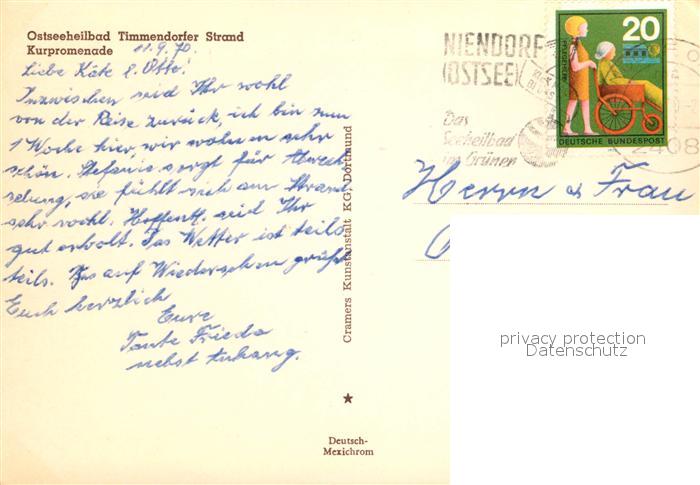 Ostseeheilbad Timmendorfer Strand
Kurpromenade
11.9.70.
Liebe Käte u. Otto!
Inzwischen seid Ihr wohl
von der Reise zurück, ich bin nun
1 Woche hier, wir wohnen sehr
schön. Stefanie sorgt für Abwech
selung, sie fühlt sich am Strand
sehr wohl. Hoffentl. seid Ihr
gut erholt. Das Wetter ist teils
teils. Bis auf Wiedersehen grüßt
Euch herzlich
Eure
Tante Frieda
nebst Anhang.
Cramers Kunstanstalt KG, Dortmund
Deutsch-
Mexichrom
NIENDORF
(OSTSEE)
Das
Seeheilbad
im Grünen
20
DEUTSCHE BUNDESPOST
2408
Herrn u. Frau
privacy protection
Datenschutz